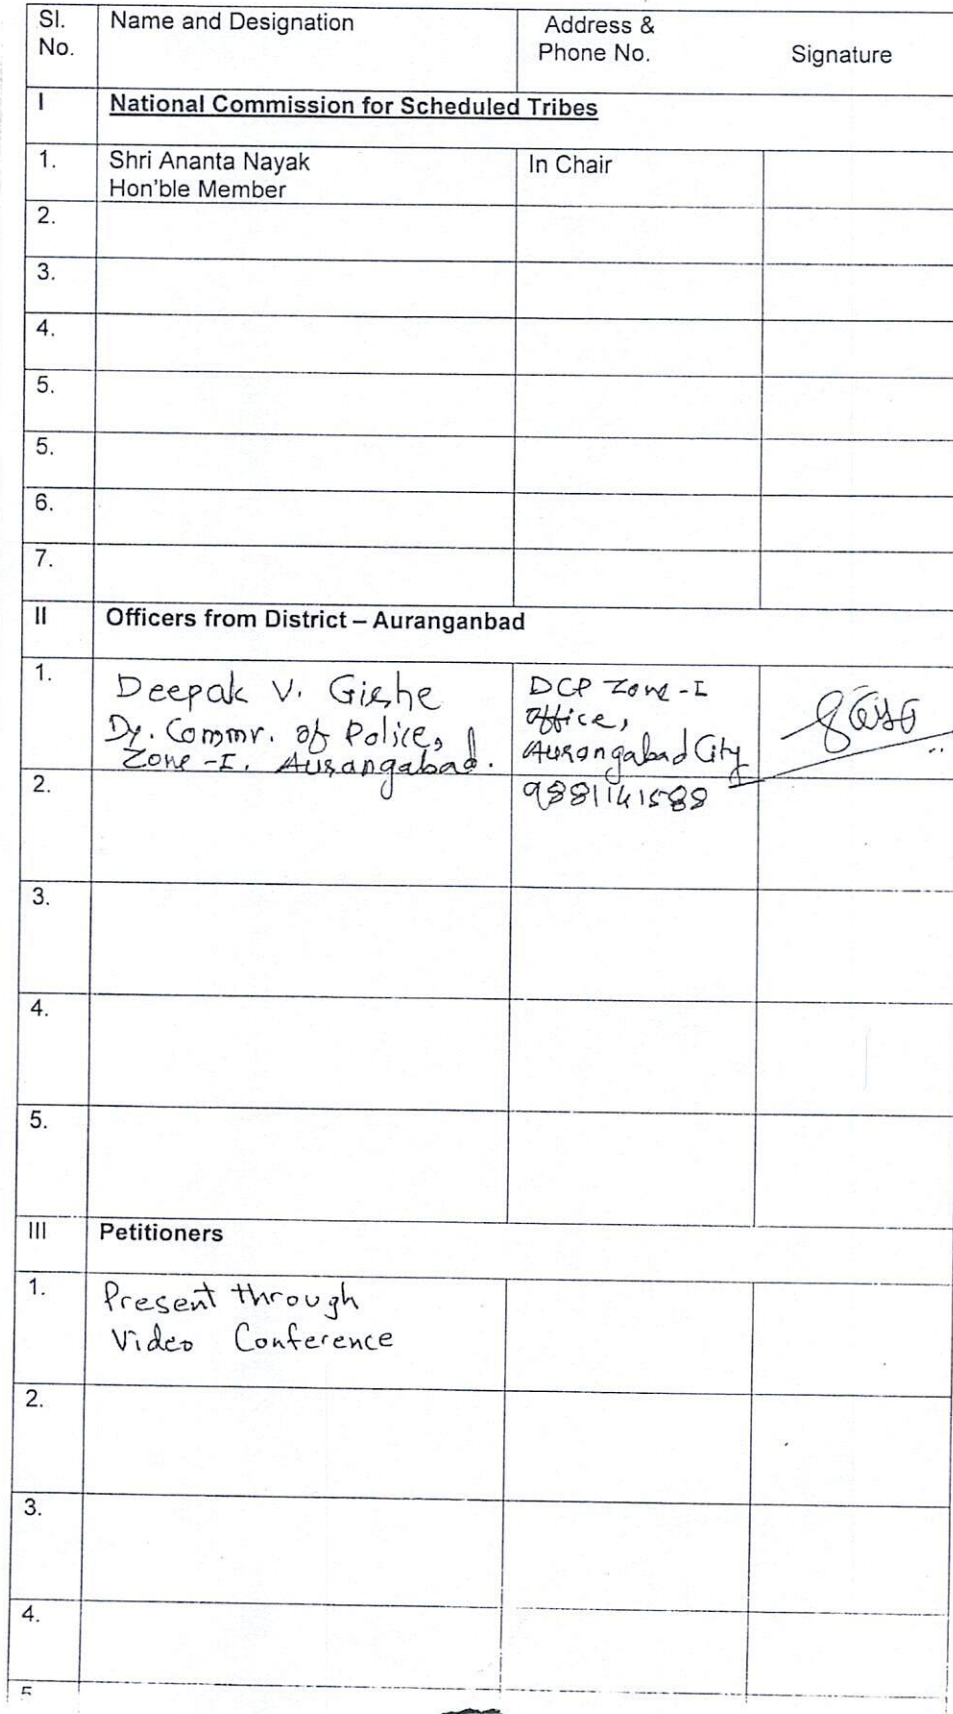 Sl. Name and Designation Address &
No. Phone No. Signature
I National Commission for Scheduled Tribes
1. Shri Ananta Nayak In Chair
Hon'ble Member
2.
3.
4.
5.
5.
6.
7.
II Officers from District – Auranganbad
1. Deepak V. Girhe DCP Zone-I
Dy. Commr. of Police, office,
Zone-I, Aurangabad. Aurangabad City
2. 9881141588
3.
4.
5.
III Petitioners
1. Present through
Video Conference
2.
3.
4.
5